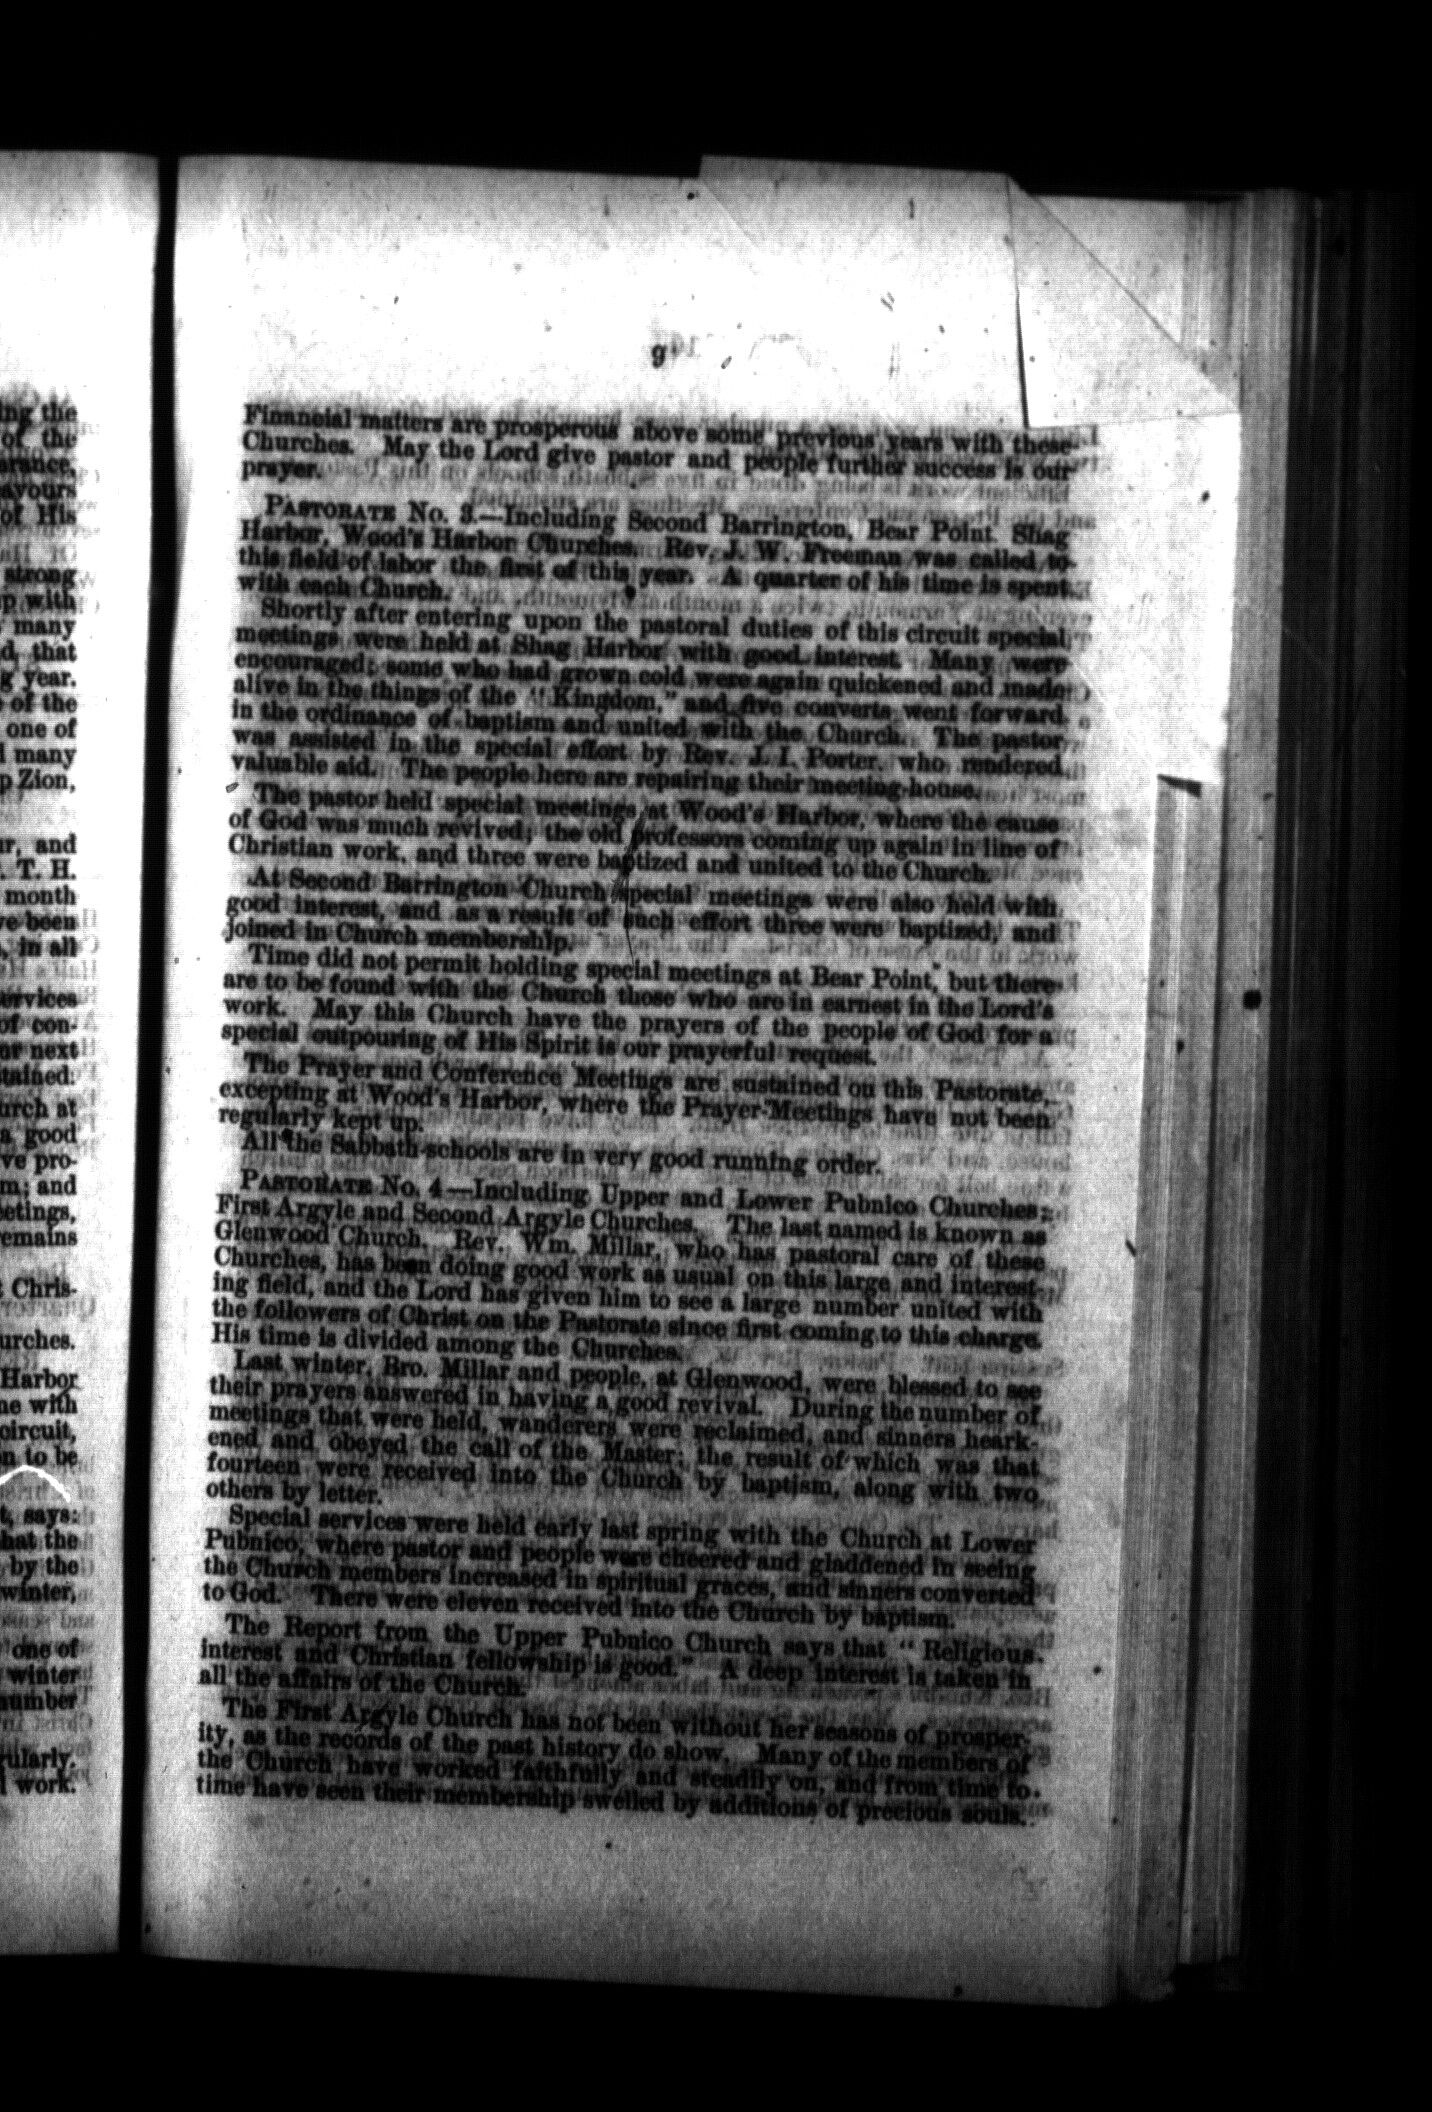 9
Financial matters are prosperous above some previous years with these
Churches. May the Lord give pastor and people further success is our
prayer.
PASTORATE No. 3.—Including Second Barrington, Bear Point, Shag
Harbor, Wood's Harbor Churches. Rev. J. W. Freeman was called to
this field of labor the first of this year. A quarter of his time is spent
with each Church.
Shortly after entering upon the pastoral duties of this circuit special
meetings were held at Shag Harbor with good interest. Many were
encouraged; some who had grown cold were again quickened and made
alive in the things of the "Kingdom," and five converts went forward
in the ordinance of baptism and united with the Church. The pastor
was assisted in the special effort by Rev. J. I. Porter, who rendered
valuable aid. The people here are repairing their meeting-house.
The pastor held special meetings at Wood's Harbor, where the cause
of God was much revived; the old professors coming up again in line of
Christian work, and three were baptized and united to the Church.
At Second Barrington Church special meetings were also held with
good interest, and as a result of such effort three were baptized, and
joined in Church membership.
Time did not permit holding special meetings at Bear Point, but there
are to be found with the Church those who are in earnest in the Lord's
work. May this Church have the prayers of the people of God for a
special outpouring of His Spirit is our prayerful request.
The Prayer and Conference Meetings are sustained on this Pastorate,
excepting at Wood's Harbor, where the Prayer-Meetings have not been
regularly kept up.
All the Sabbath-schools are in very good running order.
PASTORATE No. 4—Including Upper and Lower Pubnico Churches;
First Argyle and Second Argyle Churches. The last named is known as
Glenwood Church. Rev. Wm. Millar, who has pastoral care of these
Churches, has been doing good work as usual on this large and interest-
ing field, and the Lord has given him to see a large number united with
the followers of Christ on the Pastorate since first coming to this charge.
His time is divided among the Churches.
Last winter, Bro. Millar and people, at Glenwood, were blessed to see
their prayers answered in having a good revival. During the number of
meetings that were held, wanderers were reclaimed, and sinners heark-
ened and obeyed the call of the Master; the result of which was that
fourteen were received into the Church by baptism, along with two
others by letter.
Special services were held early last spring with the Church at Lower
Pubnico, where pastor and people were cheered and gladdened in seeing
the Church members increased in spiritual graces, and sinners converted
to God. There were eleven received into the Church by baptism.
The Report from the Upper Pubnico Church says that "Religious
interest and Christian fellowship is good." A deep interest is taken in
all the affairs of the Church.
The First Argyle Church has not been without her seasons of prosper-
ity, as the records of the past history do show. Many of the members of
the Church have worked faithfully and steadily on, and from time to
time have seen their membership swelled by additions of precious souls.